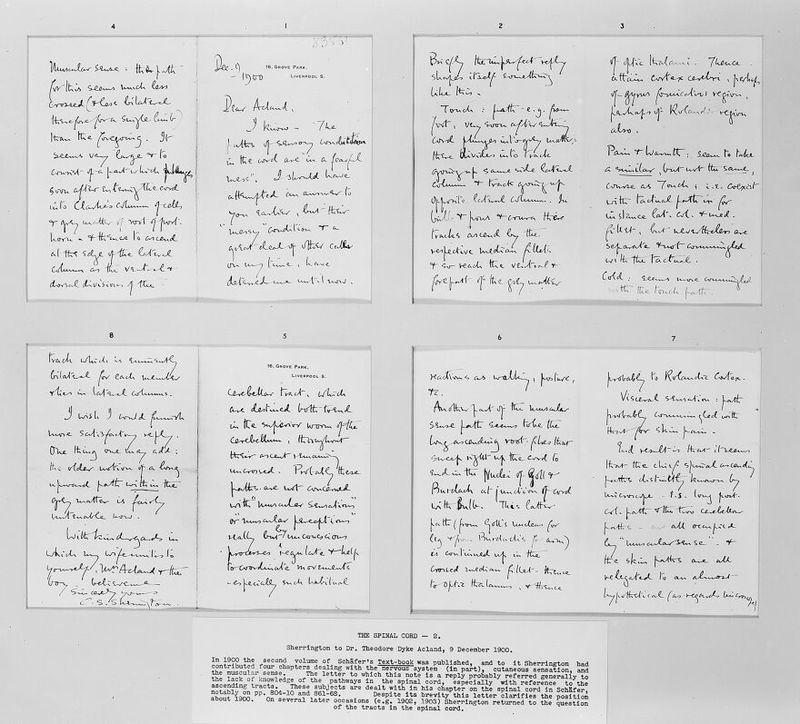 1
8355
16, GROVE PARK,
LIVERPOOL S.
Dec. 9
1900
Dear Acland,
I know – "The
paths of sensory conduction
in the cord are in a fearful
mess". I should have
attempted an answer to
you earlier, but their
"messy" condition & a
great deal of other calls
on my time, have
detained me until now.
2
Briefly the imperfect reply
shapes itself something
like this.
Touch: path e.g. from
foot, very soon after entering
cord plunges into grey matter
there divides into track
going up same side lateral
column & track going up
opposite lateral column. In
bulb & pons & crura these
tracks ascend by the
respective median fillets
& so reach the ventral &
forepart of the grey matter
3
of optic thalami. Thence
attain cortex cerebri, perhaps
of gyrus fornicatus region,
perhaps of Rolandic region
also.
Pain & Warmth: seem to take
a similar, but not the same,
course as Touch; i.e. coexist
with tactual path in for
instance lat. col. & med.
fillet, but nevertheless are
separate & not commingled
with the tactual.
Cold: seems more commingled
with the touch path.
4
Muscular sense: the path
for this seems much less
crossed (& less bilateral
therefore for a single limb
than the foregoing. It
seems very large & to
consist of a part which plunges
soon after entering the cord
into Clarke's column of cells
& grey matter of root of post.
horn – & thence to ascend
at the edge of the lateral
column as the ventral &
dorsal divisions of the
5
16, GROVE PARK,
LIVERPOOL S.
cerebellar tract, which
are destined both to end
in the superior worm of the
cerebellum, throughout
their ascent remaining
uncrossed. Probably these
paths are not concerned
with "muscular sensations"
or "muscular perceptions"
really but by unconscious
processes regulate & help
to coordinate movements
– especially such habitual
6
reactions as walking, posture,
&c.
Another part of the muscular
sense path seems to be the
long ascending root-fibres that
sweep right up the cord to
end in the Nuclei of Goll &
Burdach at junction of cord
with Bulb. This latter
path (from Goll's nucleus for
leg & from Burdach's for arm)
is continued up in the
crossed median fillet – thence
to optic thalamus, & thence
7
probably to Rolandic Cortex.
Visceral sensation: path
probably commingled with
that for skin pain.
End result is that it seems
that the chief spinal ascending
paths distinctly known by
microscope – i.e. long post.
col. path & the two cerebellar
paths – are all occupied
by "muscular sense" – &
the skin paths are all
relegated to an almost
hypothetical (as regards microscope)
8
track which is eminently
bilateral for each member
& lies in lateral columns.
I wish I could furnish
more satisfactory reply.
One thing one may add:
the older notion of a long
upward path within the
grey matter is fairly
untenable now.
With kind regards in
which my wife unites to
yourself, Mrs Acland & the
boy – believe me
Sincerely yours
C. S. Sherrington.
THE SPINAL CORD – 2.
Sherrington to Dr. Theodore Dyke Acland, 9 December 1900.
In 1900 the second volume of Schäfer's Text-book was published, and to it Sherrington had
contributed four chapters dealing with the nervous system (in part), cutaneous sensation, and
the muscular sense. The letter to which this note is a reply probably referred generally to
the lack of knowledge of the pathways in the spinal cord, especially with reference to the
ascending tracts. These subjects are dealt with in his chapter on the spinal cord in Schäfer,
notably on pp. 804-10 and 861-68. Despite its brevity this letter clarifies the position
about 1900. On several later occasions (e.g. 1902, 1903) Sherrington returned to the question
of the tracts in the spinal cord.